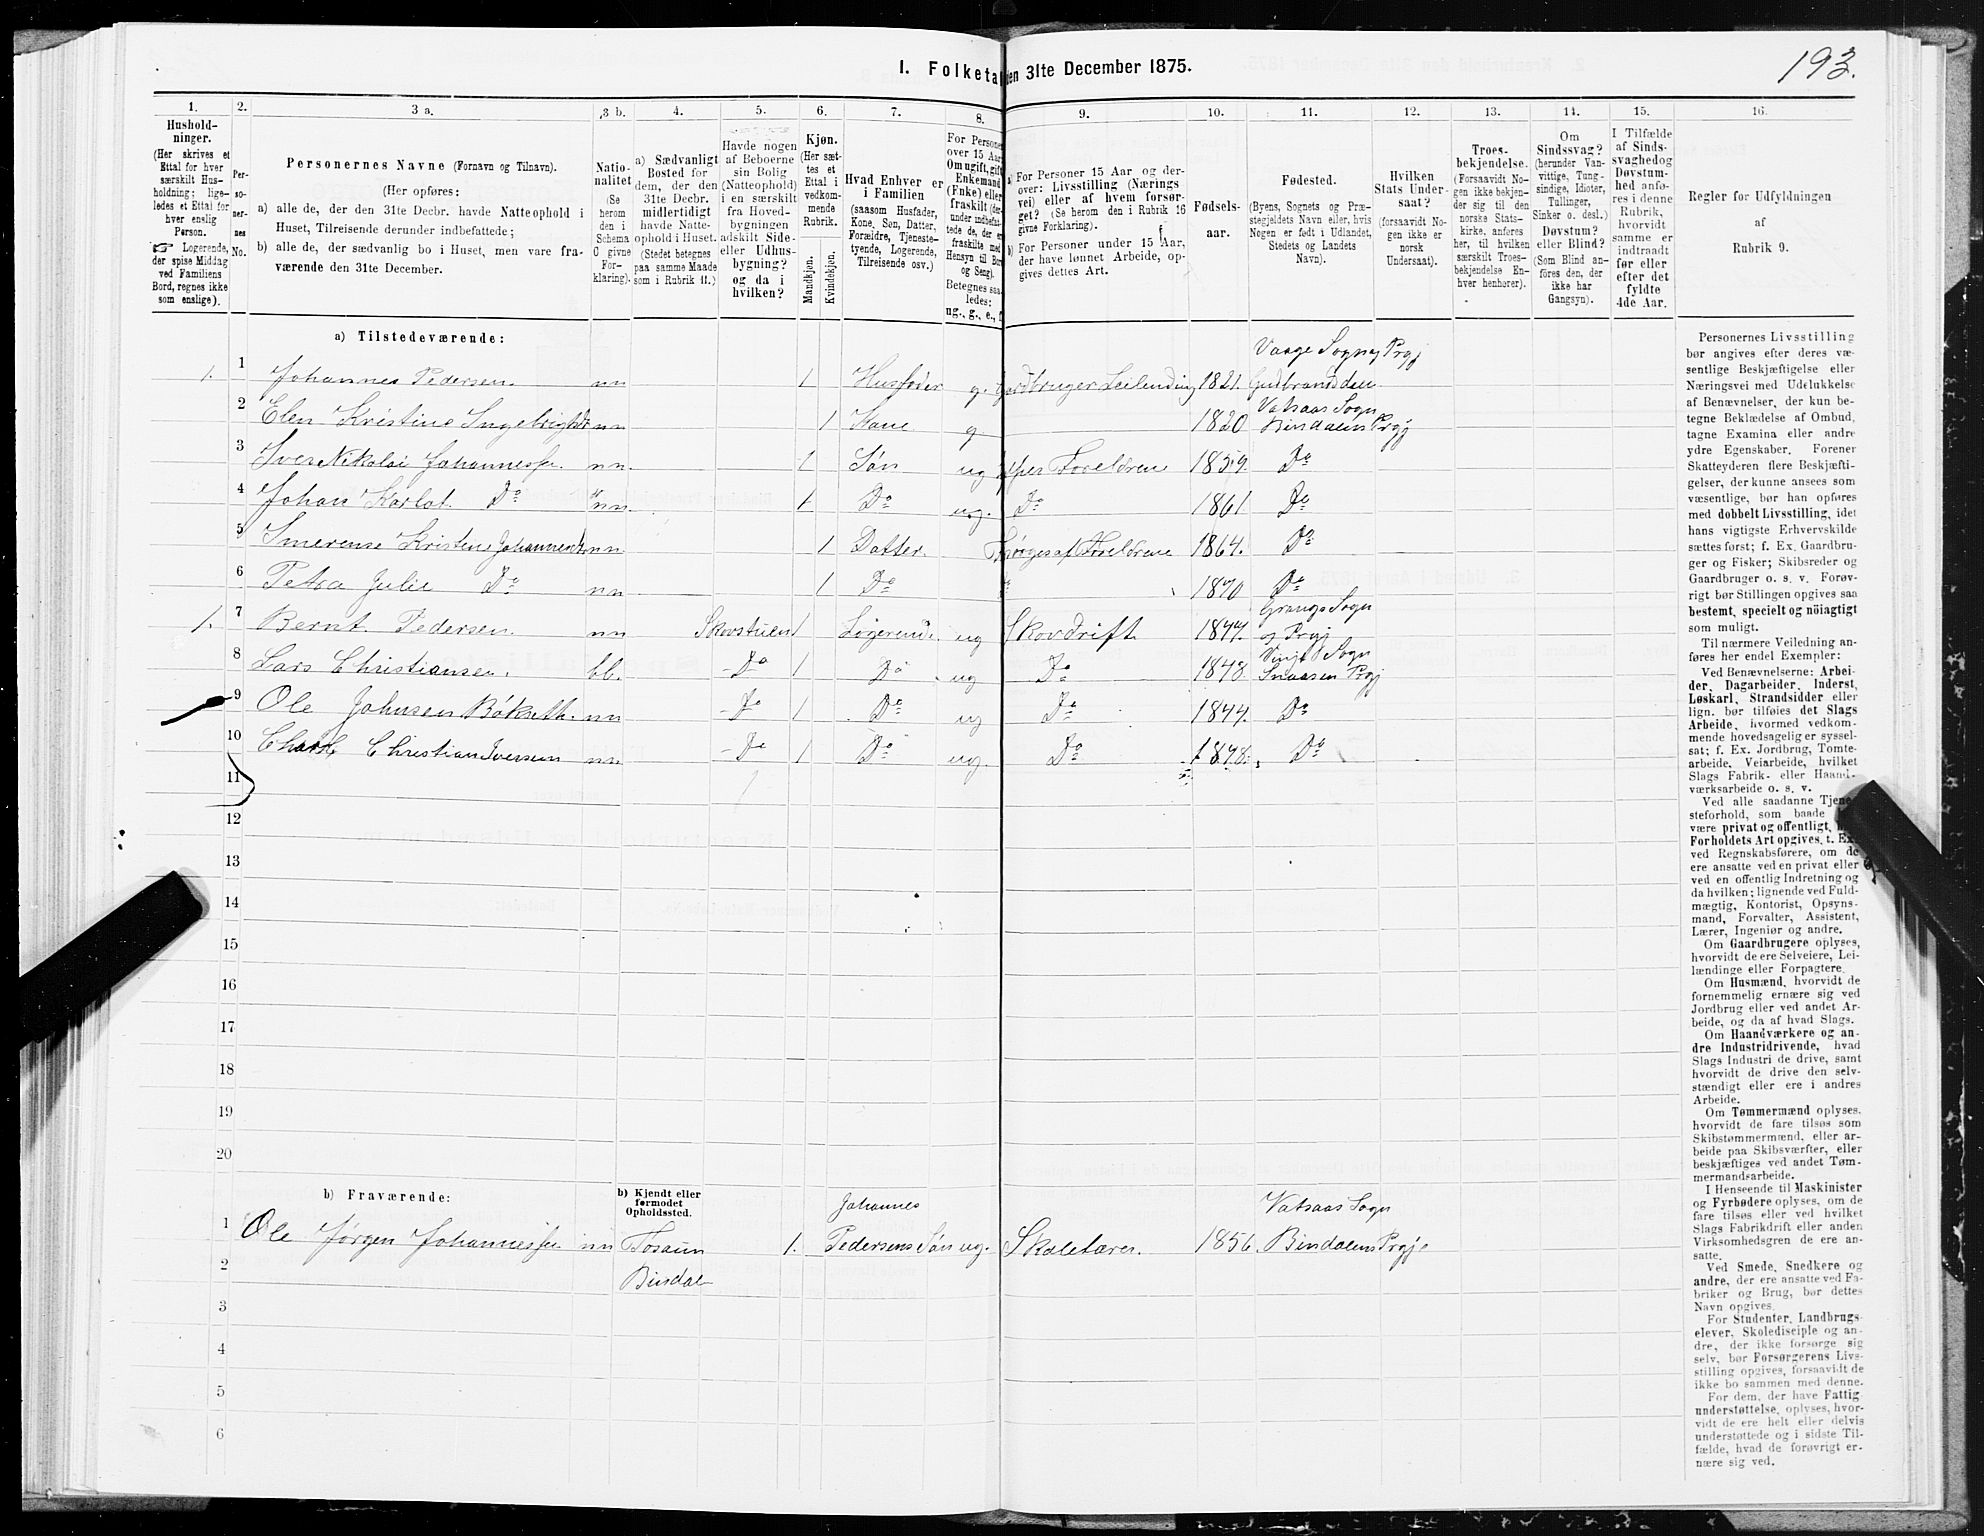 193.
I. Folketal den 31te December 1875.
1. 2. 3 a. 3 b. 4. 5. 6. 7. 8. 9. 10. 11. 12. 13. 14. 15. 16.
Hushold-
ninger.
(Her skrives et
Ettal for hver
særskilt Hus-
holdning; lige-
ledes et Ettal for
hver enslig
Person.
☞ Logerende,
der spise Middag
ved Familiens
Bord, regnes ikke
som enslige).
Per-
so-
ner-
nes
No.
Personernes Navne (Fornavn og Tilnavn).
(Her opføres:
a) alle de, der den 31te Decbr. havde Natteophold i
Huset, Tilreisende derunder indbefattede;
b) alle de, der sædvanlig bo i Huset, men vare fra-
værende den 31te December.
Natio-
nalitet
(Se
herom
den i
Schema
C givne
For-
klaring).
a) Sædvanligt
Bosted for
dem, der den
31te Decbr.
midlertidigt
havde Natte-
ophold i Huset.
(Stedet betegnes
paa samme Maade
som i Rubrik 11.)
Havde nogen
af Beboerne
sin Bolig
(Natteophold)
i en særskilt
fra Hoved-
bygningen
adskilt Side-
eller Udhus-
bygning?
og da i
hvilken?
Kjøn.
(Her sæt-
tes et
Ettal i
vedkom-
mende
Rubrik.
Mandkjøn.
Kvindekjøn.
Hvad Enhver er
i Familien
(saasom Husfader,
Kone, Søn, Datter,
Forældre, Tjeneste-
tyende, Logerende,
Tilreisende osv.)
For Personer
over 15 Aar:
Omugift, gift
Enkemand
(Enke) eller
fraskilt
Betegnes saa-
ledes:
ug., g., e., f.
a) For Personer 15 Aar og der-
over: Livsstilling (Nærings
vei) eller af hvem forsør-
get? (Se herom den i Rubrik 16
givne Forklaring).
b) For Personer under 15 Aar,
der have lønnet Arbeide, op-
gives dettes Art.
Fødsels-
aar.
Fødested.
(Byens, Sognets og Præ-
stegjeldets Navn eller, hvis
Nogen er født i Udlandet,
Stedets og Landets
Navn).
Hvilken
Stats Under-
saat?
(forsaavidt No-
gen ikke er
norsk
Undersaat).
Troes-
bekjendelse.
(Forsaavidt No-
gen ikke bekjen-
der sig til den
norske Stats-
kirke, anføres
her, til hvilken
særskilt Troes-
bekjendelse En-
hver henhører).
Om
Sindssvag?
(herunder Van-
vittige, Tung-
sindige, Idioter,
Tullinger,
Sinker o. desl.)
Døvstum?
eller Blind?
(Som Blind an-
føres den, der
ikke har
Gangsyn).
I Tilfælde
af Sinds-
svaghedog
Døvstum-
hed anfø-
res i denne
Rubrik,
hvorvidt
samme er
indtraadt
før eller
efter det
fyldte
4de Aar.
Regler for Udfyldningen
af
Rubrik 9.
a) Tilstedeværende:
Vaage Sogn og Prgj
1. 1 Johannes Pedersen nn 1 Husfader g. Gardbruger Leilending 1821. Gudbrandsdalen
Vatsaas Sogn
2 Elen Kristine Ingebrigtsdr nn 1 Kone g 1820 Bindalens Prgj
3 Iver Nikolai Johannessen nn 1 Søn ug hos Foreldrene 1859. Do
4 Johan Karlot Do nn 1 Do ug. Do 1861 Do
5 Imerense Kristine Johannesdr nn 1 Datter. Forsørges af Foreldrene 1864. Do
6 Petra Julie Do nn 1 Do " 1870 Do
Grongs Sogn
1. 7 Bernt Pedersen nn Skovstuen 1 Logerende ug Skovdrift 1847. og Prgj
8 Lars Christiansen. bl. - Do 1 Do ug Do 1848. Snaasen Prgj
9 Ole Johnsen nn - Do 1 Do ug Do 1844. Do
10 Christian Iversen nn - Do 1 Do ug. Do 1848. Do
11
12
13
14
15
16
17
18
19
20
b) Fraværende:
b) Kjendt eller
formodet
Opholdssted.
Johannes Vatsaas Sogn
1 Ole Jørgen Johannessen nn Tosaun 1. Pedersens Søn ug. Skolelærer. 1856. Bindalens Prgj.
2 Bindal
3
4
5
6
Personernes Livsstilling
bør angives efter deres væ-
sentlige Beskjæftigelse eller
Næringsvei med Udelukkelse
af Benævnelser, der kun be-
tegne Beklædelse af Ombud,
tagne Examina eller andre
ydre Egenskaber. Forener
Skatteyderen flere Beskjæfti-
gelser, der kunne ansees som
væsentlige, bør han opføres
med dobbelt Livsstilling, idet
hans vigtigste Erhvervskilde
sættes først; f. Ex. Gaardbru-
ger og Fisker; Skibsreder og
Gaardbruger o. s. v. Forøv-
rigt bør Stillingen opgives saa
bestemt, specielt og nøiagtigt
som muligt.
Til nærmere Veiledning an-
føres her endel Exempler:
Ved Benævnelserne: Arbei-
der, Dagarbeider, Inderst,
Løskarl, Strandsidder eller
lign. bør tilføies det Slags
Arbeide, hvormed vedkom-
mende hovedsagelig er syssel-
sat; f. Ex. Jordbrug, Tomte-
arbeide, Veiarbeide, hvilket
Slags Fabrik- eller Haand-
værksarbeide o. s. v.
Ved alle saadanne Tjene-
steforhold, som baade
være privat og offentligt,
Forholdets Art opgives, t. Ex.
ved Regnskabsførere, om de
ere ansatte ved en privat eller
ved en offentlig Indretning og
da hvilken; lignende ved Fuld-
mægtig, Kontorist, Opsyns-
mand, Forvalter, Assistent,
Lærer, Ingeniør og andre.
Om Gaardbrugere oplyses,
hvorvidt de ere Selveiere, Lei-
lændinge eller Forpagtere.
Om Husmænd, hvorvidt de
fornemmelig ernære sig ved
Jordbrug eller ved andet Ar-
beide, og da af hvad Slags.
Om Haandværkere og an-
dre Industridrivende, hvad
Slags Industri de drive, samt
hvorvidt de drive den selv-
stændigt eller ere i andres
Arbeide.
Om Tømmermænd oplyses,
hvorvidt de fare tilsøs som
Skibstømmermænd, eller ar-
beide paa Skibsværfter, eller
beskjæftiges ved andet Tøm-
mermandsarbeide.
I Henseende til Maskinister
og Fyrbødere oplyses, om de
fare tilsøs eller ved hvilket
Slags Fabrikdrift eller anden
Virksomhedsgren de ere an-
satte.
Ved Smede, Snedkere og
andre, der ere ansatte ved Fa-
briker og Brug, bør dettes
Navn opgives.
For Studenter, Landbrugs-
elever, Skoledisciple og an-
dre, der ikke forsørge sig
selv, bør Forsørgerens Livs-
stilling opgives, forsaavidt de
ikke bo sammen med denne.
For dem, der have Fattig-
understøttelse, oplyses, hvor-
vidt de ere helt eller delvis
understøttede og i sidste Til-
fælde, hvad de forøvrigt er-
nære sig ved.